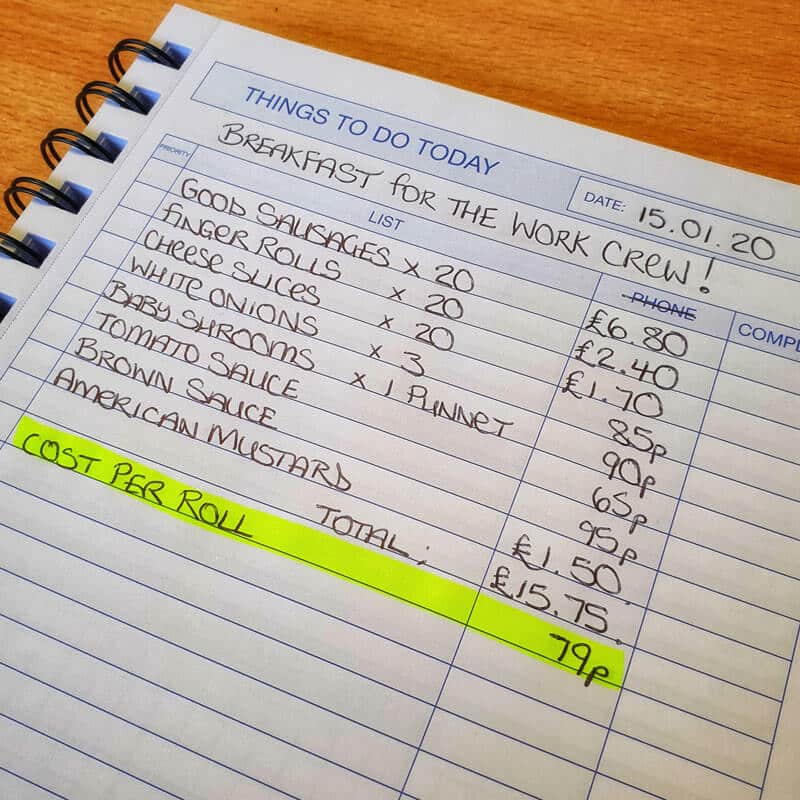 THINGS TO DO TODAY
DATE: 15.01.20
BREAKFAST FOR THE WORK CREW!
PRIORITY LIST PHONE COMPL
GOOD SAUSAGES x 20 £6.80
FINGER ROLLS x 20 £2.40
CHEESE SLICES x 20 £1.70
WHITE ONIONS x 3 85p
BABY SHROOMS x 1 PUNNET 90p
TOMATO SAUCE 65p
BROWN SAUCE 95p
AMERICAN MUSTARD £1.50
TOTAL: £15.75
COST PER ROLL 79p